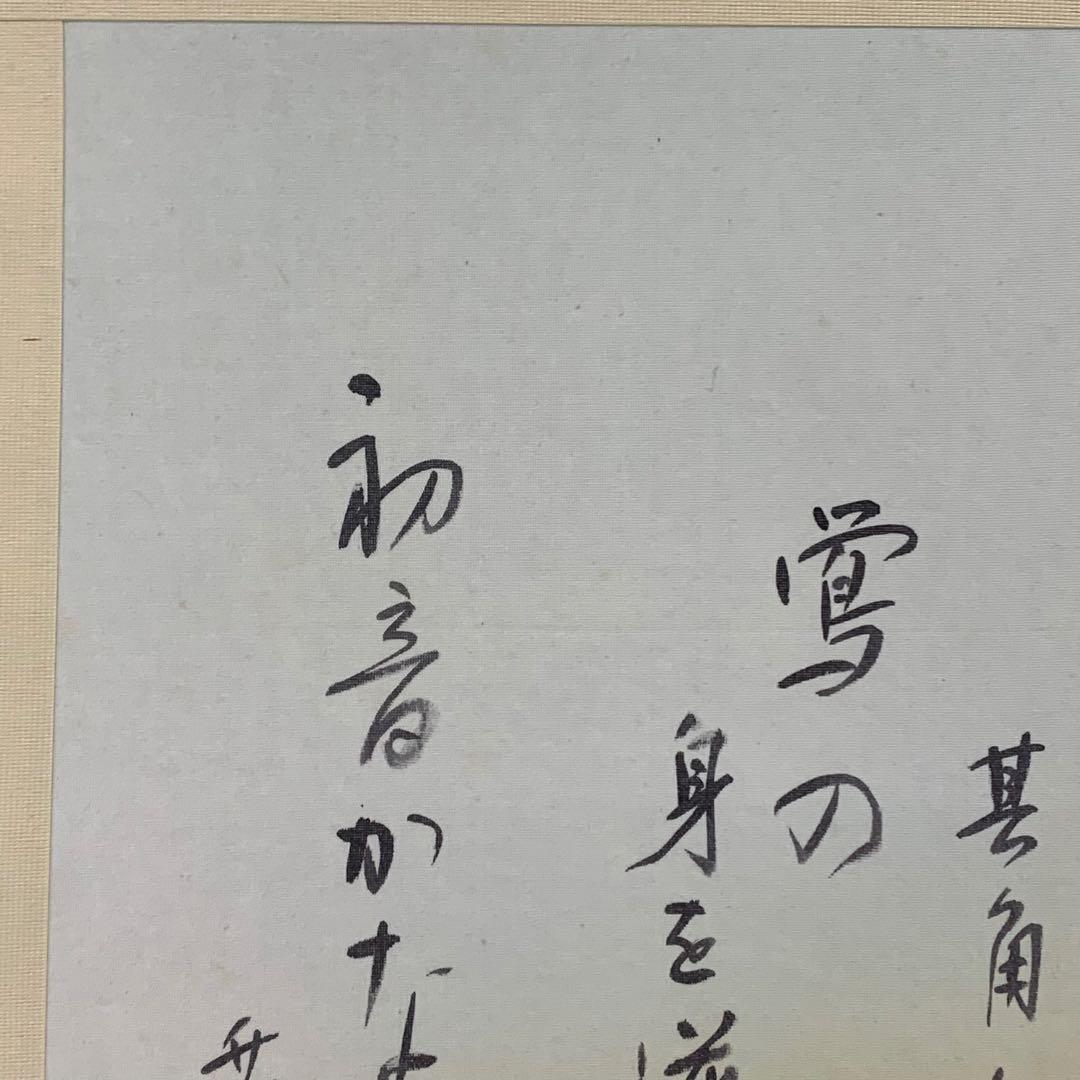 其角
鶯の
身を
初音かな